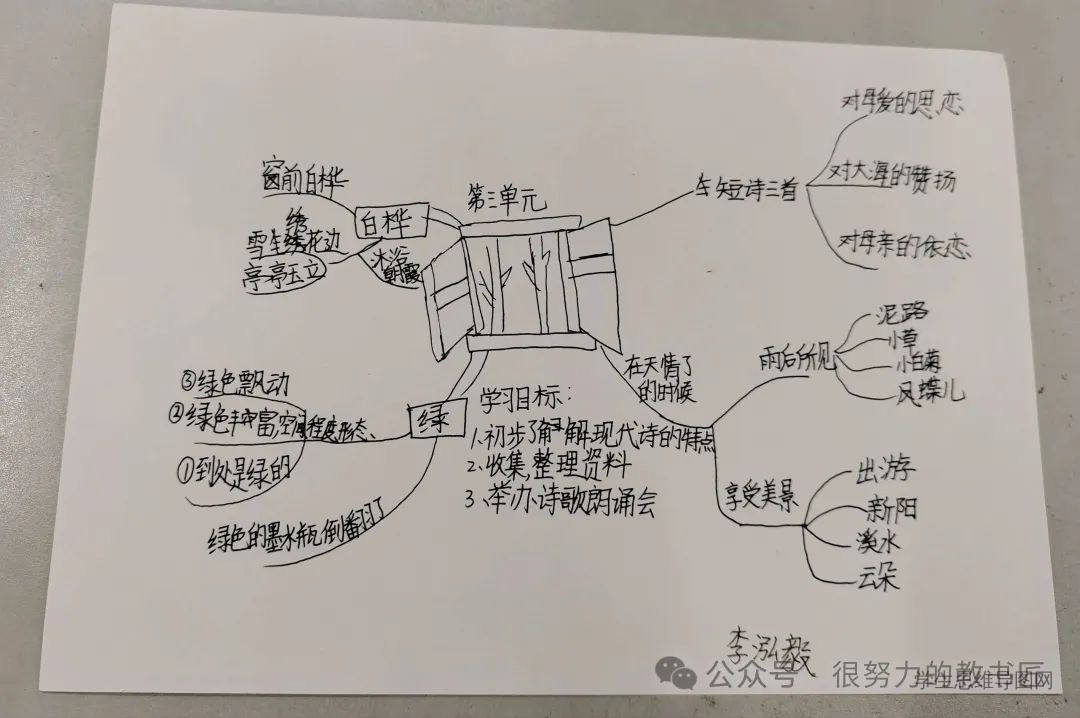 第三单元
白桦
窗前白桦
绣
雪生绣花边
亭亭玉立
沐浴
朝霞
短诗三首
对母爱的思恋
对大海的赞扬
对母亲的依恋
在天情了
的时候
雨后所见
泥路
小草
小白菊
凤蝶儿
享受美景
出游
新阳
溪水
云朵
绿
③绿色飘动
②绿色丰富,空间程度形态、
①到处是绿的
绿色的墨水瓶倒翻了
学习目标:
1.初步了解现代诗的特点
2.收集,整理资料
3.举办诗歌朗诵会
李泓毅
公众号 很努力的教书匠
学生思维导图网